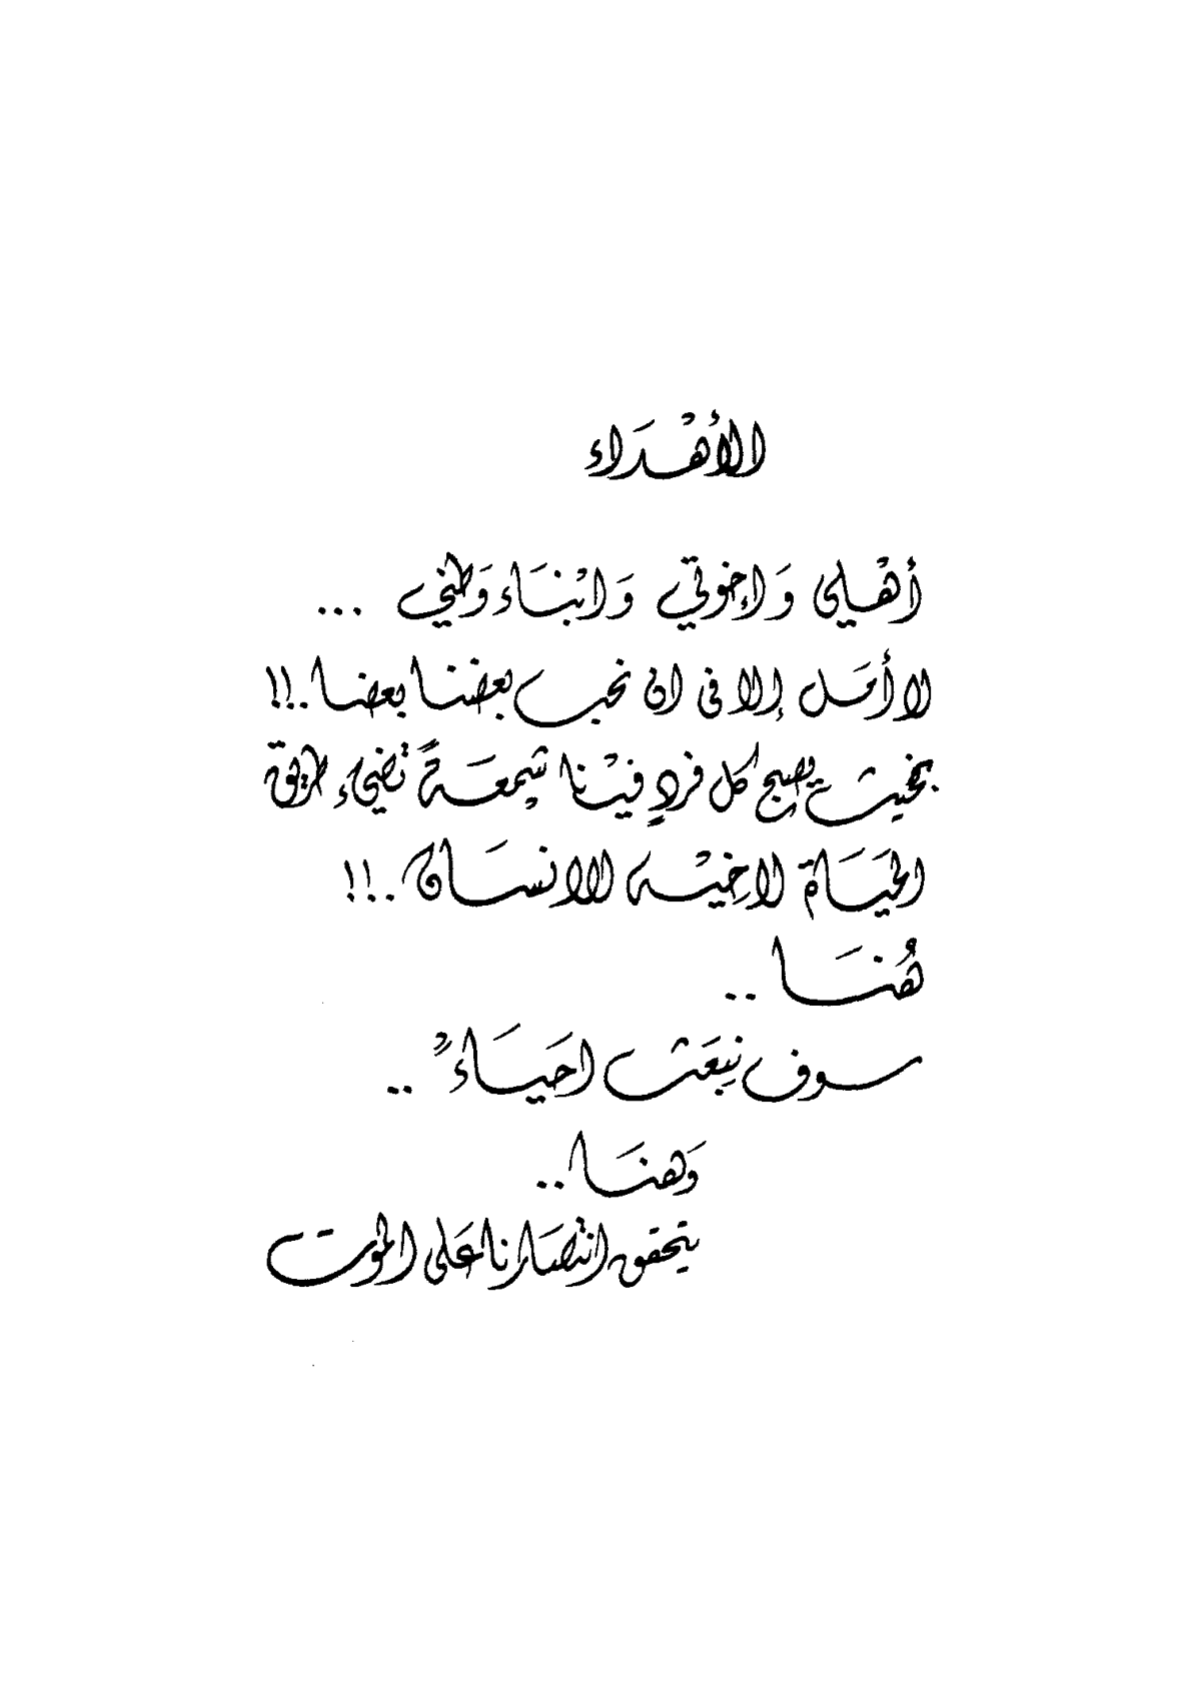 الأهْدَاء
أهْلي وَإخوتي وَابْنَاء وَطني ...
لا أمَل إلا فى ان نحب بعضنا بعضا..!!
بحيث يصبح كل فردٍ فيْنا شمعَةً تضيء طريق
الحيَاة لاخِيْه الانسَان..!!
هُنَا ..
سوف نبعَث احيَاءً ..
وَهنَا ..
يتحقق انتصَارنا عَلى الموت